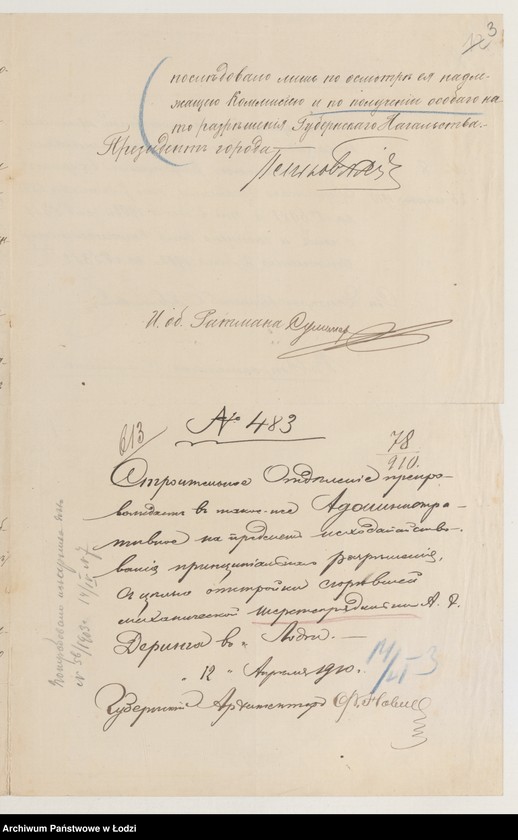 3
послѣдовало лишь по осмотрѣ ея надле-
жащею Коммисіею и по полученіи особаго на
то разрѣшенія Губернскаго Начальства.
Президентъ города
И. об. Ратмана
613
№ 483
78
910.
Строительное Отдѣленіе препро-
вождаетъ въ таковое же Администра-
тивное на предметъ исходатайство-
ванія принципіальнаго разрѣшенія,
съ цѣлью отстройки сгорѣвшей
механической шерстопрядильни А. Г.
Деринга въ г. Лодзи.
„ 12 „ Апрѣля 1910 г.
14/IV 3
Губернскій Архитекторъ
№ 56/1903
Archiwum Państwowe w Łodzi